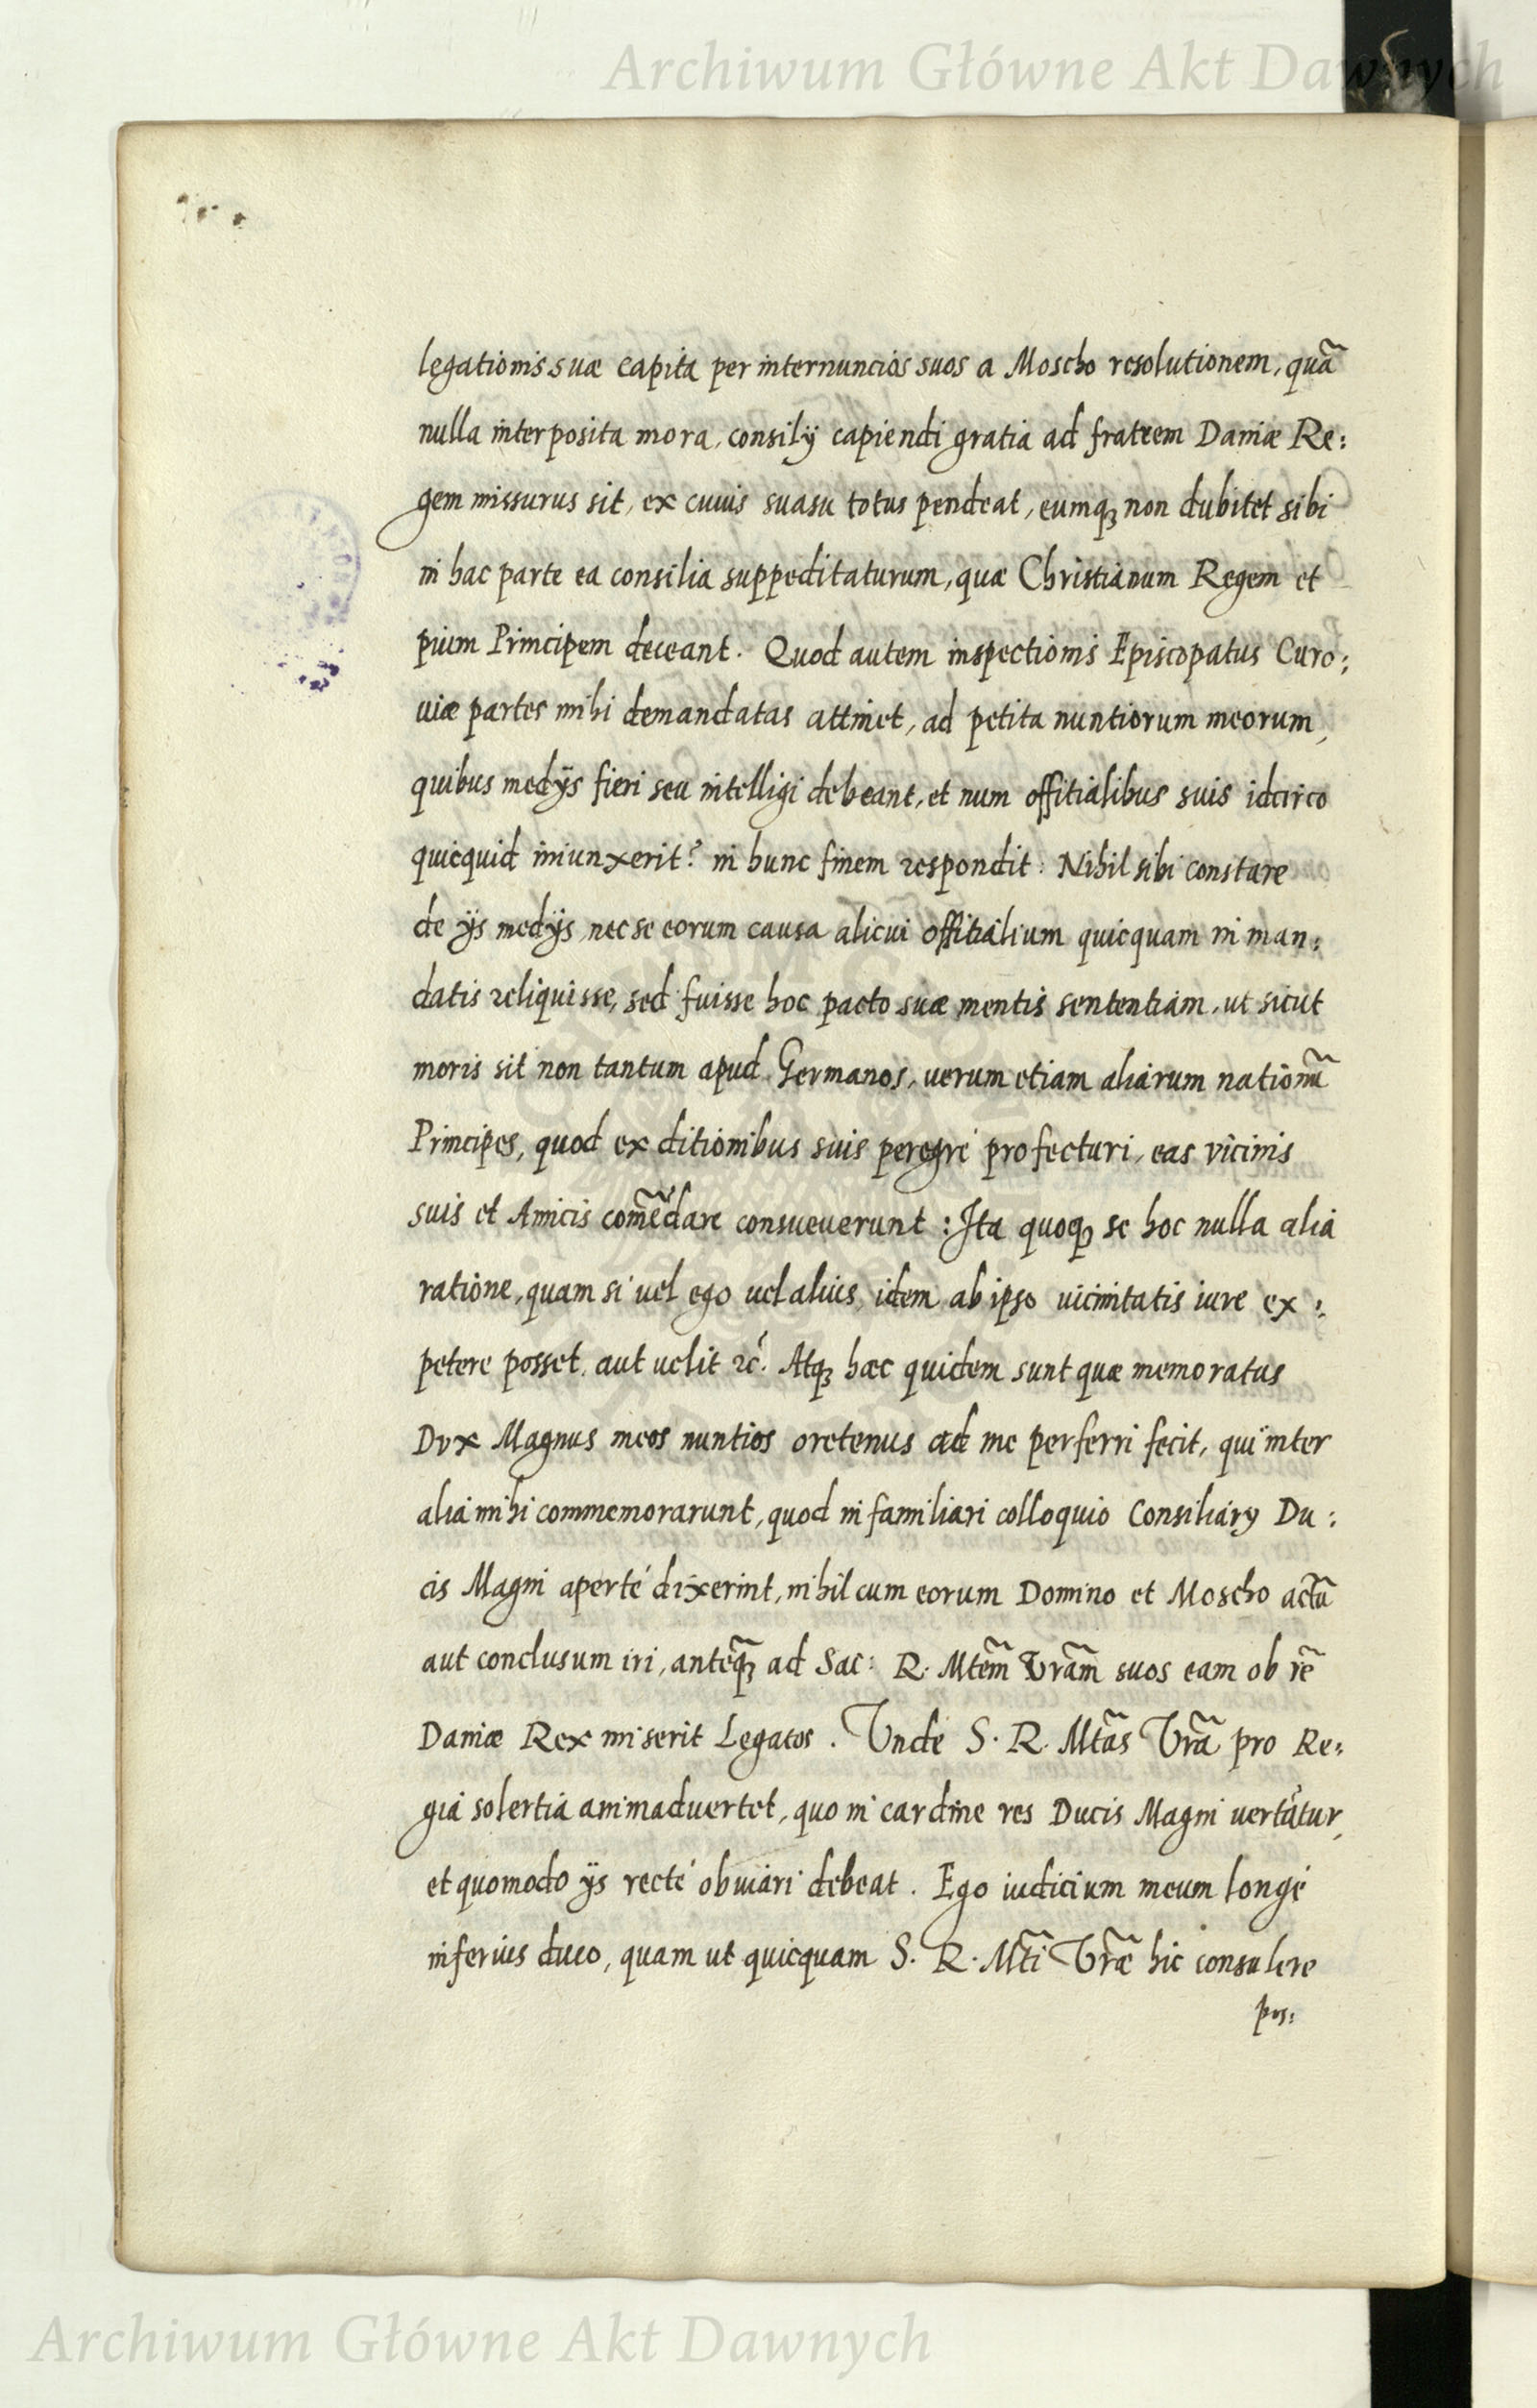 Archiwum Główne Akt Dawnych
legationis suæ capita per internuncios suos a Moscho resolutionem, quã
nulla interposita mora, consilÿ capiendi gratia ad fratrem Daniæ Re:
gem missurus sit, ex cuius suasu totus pendeat, eumqꝫ non dubitet sibi
in hac parte ea consilia suppeditaturum, quæ Christianum Regem et
pium Principem deceant. Quod autem inspectionis Episcopatus Curo:
uiæ partes mihi demandatas attinet, ad petita nuntiorum meorum,
quibus medÿs fieri seu intelligi debeant, et num offitialibus suis idcirco
quicquid iniunxerit? in hunc finem respondit: Nihil sibi constare
de ÿs medÿs, nec se eorum causa alicui offitialium quicquam in man:
datis reliquisse, sed fuisse hoc pacto suæ mentis sententiam, ut sicut
moris sit non tantum apud Germanos, uerum etiam aliarum nationũ
Principes, quod ex ditionibus suis peregrè profecturi, eas vicinis
suis et Amicis com̃ẽdare consueuerunt: Ita quoqꝫ se hoc nulla alia
ratione, quam si uel ego uel alius, idem ab ipso uicinitatis iure ex:
petere posset, aut uelit ꝛc̃. Atqꝫ hæc quidem sunt quæ memoratus
Dvx Magnus meos nuntios oretenus ad me perferri fecit, qui inter
alia mihi commemorarunt, quod in familiari colloquio Consiliarÿ Du:
cis Magni apertè dixerint, nihil cum eorum Domino et Moscho actũ
aut conclusum iri, anteq̃ꝫ ad Sac: R. Mtem̃ Vram̃ suos eam ob rẽ
Daniæ Rex miserit Legatos. Vnde S. R. Mtãs Vrã pro Re:
gia solertia animaduertet, quo in cardine res Ducis Magni uertãtur,
et quomodo ÿs rectè obuiari debeat. Ego iudicium meum longè
inferius duco, quam ut quicquam S. R. Mtĩ Vræ̃ hic consulere
pos:
Archiwum Główne Akt Dawnych